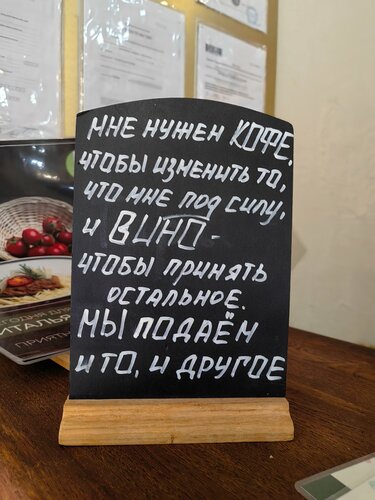 МНЕ НУЖЕН КОФЕ,
ЧТОБЫ ИЗМЕНИТЬ ТО,
ЧТО МНЕ ПОД СИЛУ,
И ВИНО -
ЧТОБЫ ПРИНЯТЬ
ОСТАЛЬНОЕ.
МЫ ПОДАЁМ
И ТО, И ДРУГОЕ